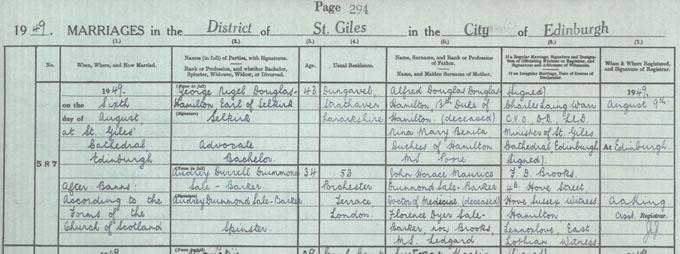 Page 294
1949. MARRIAGES in the District of St. Giles in the City of Edinburgh
(1.) (2.) (3.) (4.) (5.) (6.) (7.)
No.
When, Where, and How Married.
Names (in full) of Parties, with Signatures.
Rank or Profession, and whether Bachelor, Spinster, Widower, Widow, or Divorced.
Age.
Usual Residence.
Name, Surname, and Rank or Profession of Father.
Name, and Maiden Surname of Mother.
If a Regular Marriage, Signature and Designation of Officiating Minister or Registrar, and Signatures and Addresses of Witnesses.
If an Irregular Marriage, Date of Decree of Declarator.
When & Where Registered, and Signature of Registrar.
587
1949.
on the Sixth
day of August,
at St. Giles'
Cathedral
Edinburgh
After Banns:
According to the
Forms of the
Church of Scotland
(Name in full)
George Nigel Douglas-
Hamilton Earl of Selkirk
(Signature)
Selkirk
Advocate
Bachelor.
(Name in full)
Audrey Durrell Drummond
Sale-Barker
(Signature)
Audrey Drummond Sale-Barker
Spinster
43
34
Dungavel,
Strathaven
Lanarkshire
53
Porchester
Terrace
London.
Alfred Douglas Douglas-
Hamilton, 13th Duke of
Hamilton. (deceased)
Nina Mary Benita
Duchess of Hamilton
M.S. Poore
John Horace Maurice
Drummond Sale-Barker
Doctor of Medicine (deceased)
Florence Dyer Sale-
Barker, now Brooks,
M.S. Ledgard
(Signed)
Charles Laing Warr
C.V.O., D.D., LL.D.
Minister of St. Giles
Cathedral Edinburgh
(Signed).
F. D. Brooks.
Hove Street
Hove Sussex Witness.
Hamilton
Lennoxlove, East
Lothian, Witness.
1949.
August 9th
At Edinburgh.
Asst. Registrar.